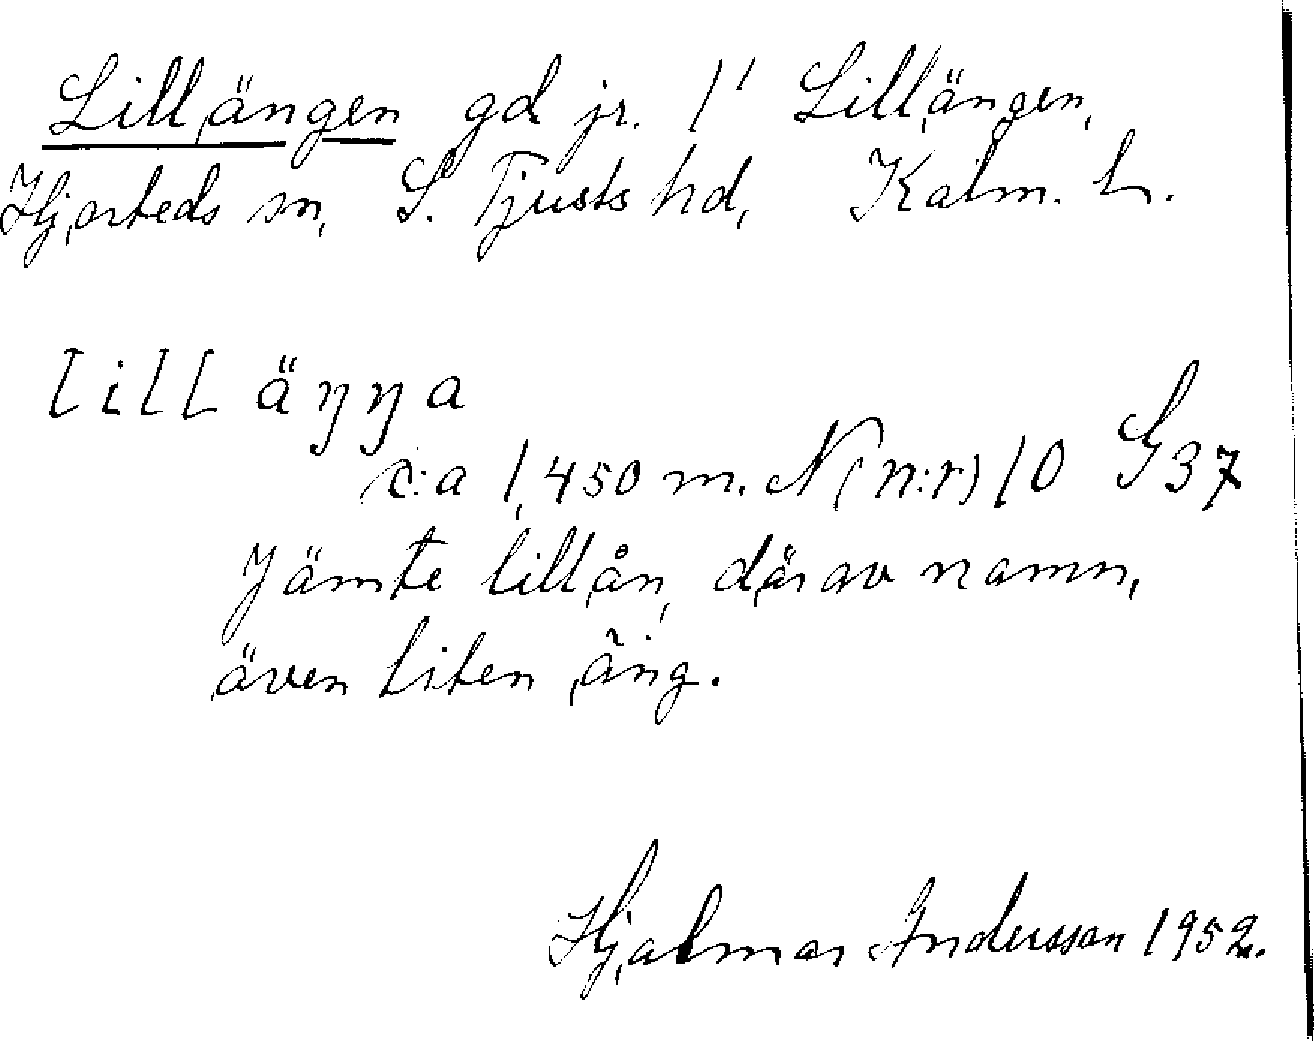 Lillängen gd jr. 1¹ Lillängen,
Hjorteds sn, S. Tjusts hd, Kalm. L.
lilläŋŋa
c:a 1,450 m. N (n:r) 10 G37
Jämte lillån, därav namn,
även liten äng.
Hjalmar Andersson 1952.